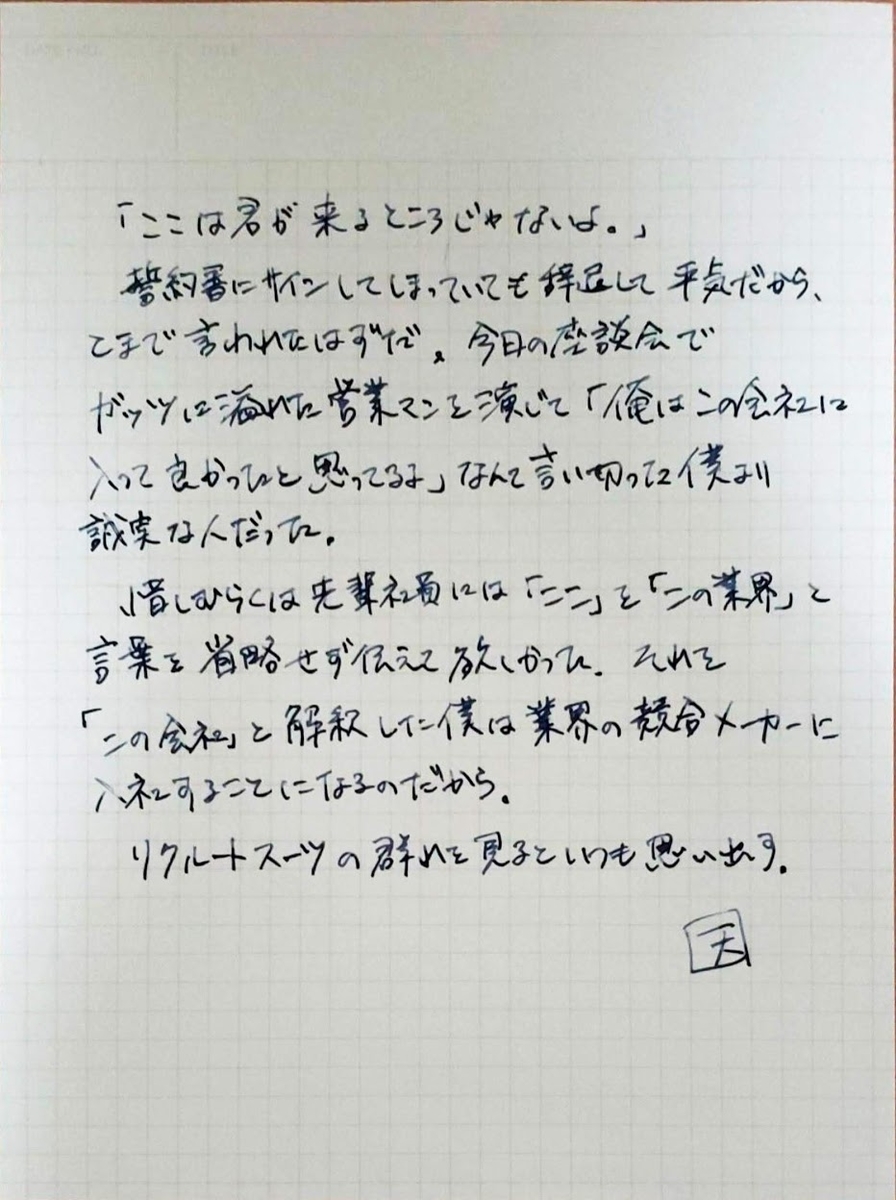 「ここは君が来るところじゃないよ。」
誓約書にサインしてしまっていても辞退して平気だから、
とまで言われたはずだ。今日の座談会で
ガッツに溢れた営業マンを演じて「俺はこの会社に
入って良かったと思ってるよ」なんて言い切った僕より
誠実な人だった。
惜しむらくは先輩社員には「ここ」を「この業界」と
言葉を省略せず伝えて欲しかった。それを
「この会社」と解釈した僕は業界の競合メーカーに
入社することになるのだから。
リクルートスーツの群れを見るといつも思い出す。
天